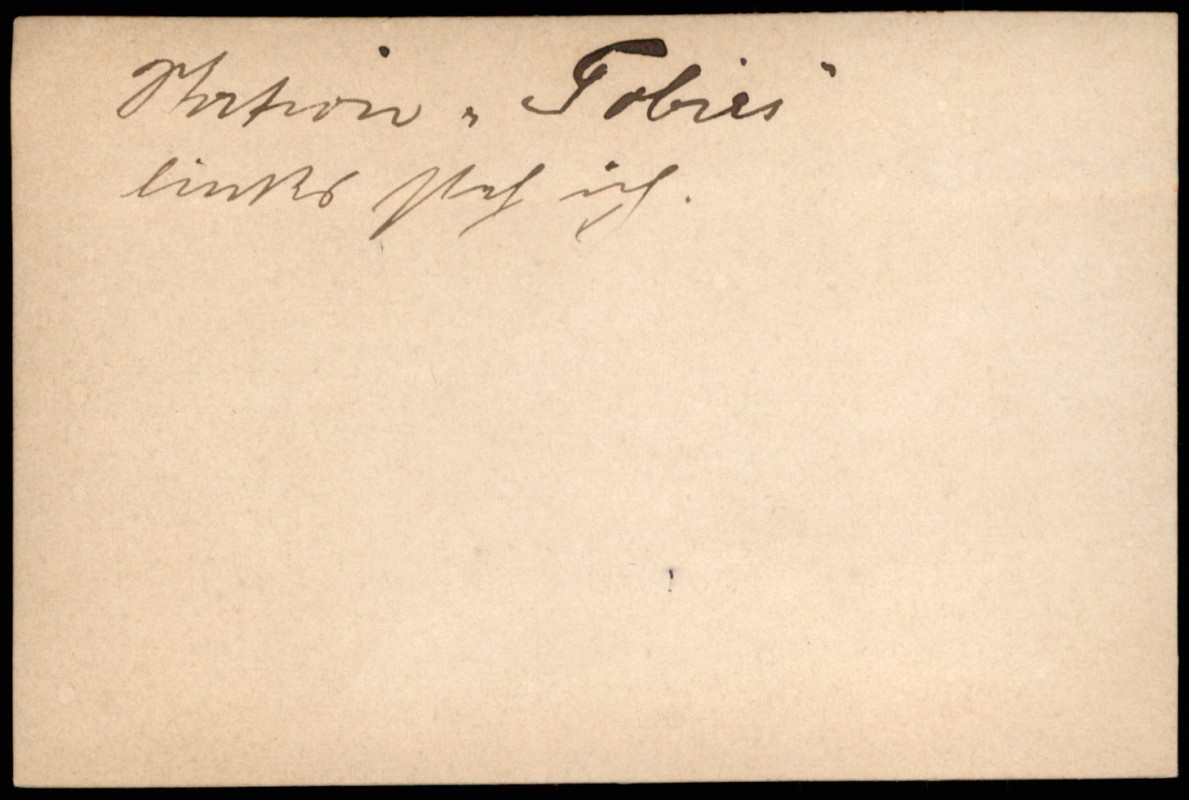 Station „Tobias“
links steh ich.